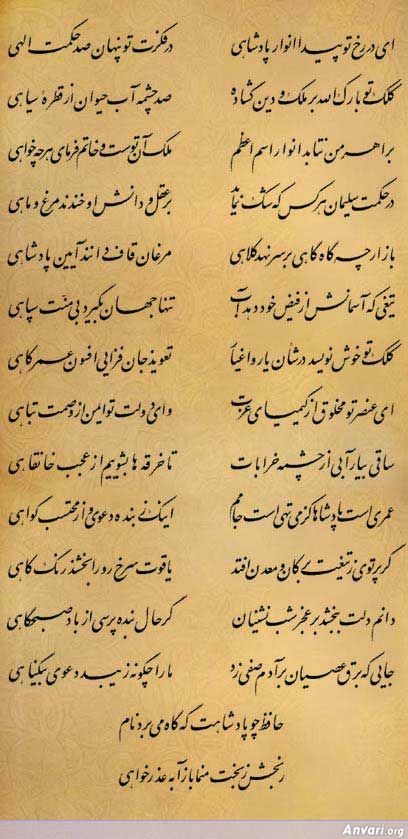 ای در رخ تو پیدا انوار پادشاهی در فکرت تو پنهان صد حکمت الهی
کلک تو بارک الله بر ملک و دین گشاده صد چشمه آب حیوان از قطره سیاهی
بر اهرمن نتابد انوار اسم اعظم ملک آن توست و خاتم فرمای هر چه خواهی
در حکمت سلیمان هر کس که شک نماید بر عقل و دانش او خندند مرغ و ماهی
باز ار چه گاه گاهی بر سر نهد کلاهی مرغان قاف دانند آیین پادشاهی
تیغی که آسمانش از فیض خود دهد آب تنها جهان بگیرد بی منت سپاهی
کلک تو خوش نویسد در شان یار و اغیار تعویذ جان فزایی افسون عمر کاهی
ای عنصر تو مخلوق از کیمیای عزت و ای دولت تو ایمن از وصمت تباهی
ساقی بیار آبی از چشمه خرابات تا خرقه ها بشوییم از عجب خانقاهی
عمریست پادشاها کز می تهیست جامم اینک ز بنده دعوی و از محتسب گواهی
گر پرتوی ز تیغت بر کان و معدن افتد یاقوت سرخ رو را بخشند رنگ کاهی
دانم دلت ببخشد بر عجز شب نشینان گر حال بنده پرسی از باد صبحگاهی
جایی که برق عصیان بر آدم صفی زد ما را چگونه زیبد دعوی بی‌گناهی
حافظ چو پادشاهت گه گاه می برد نام
رنجش ز بخت منما باز آ به عذرخواهی
Anvari.org